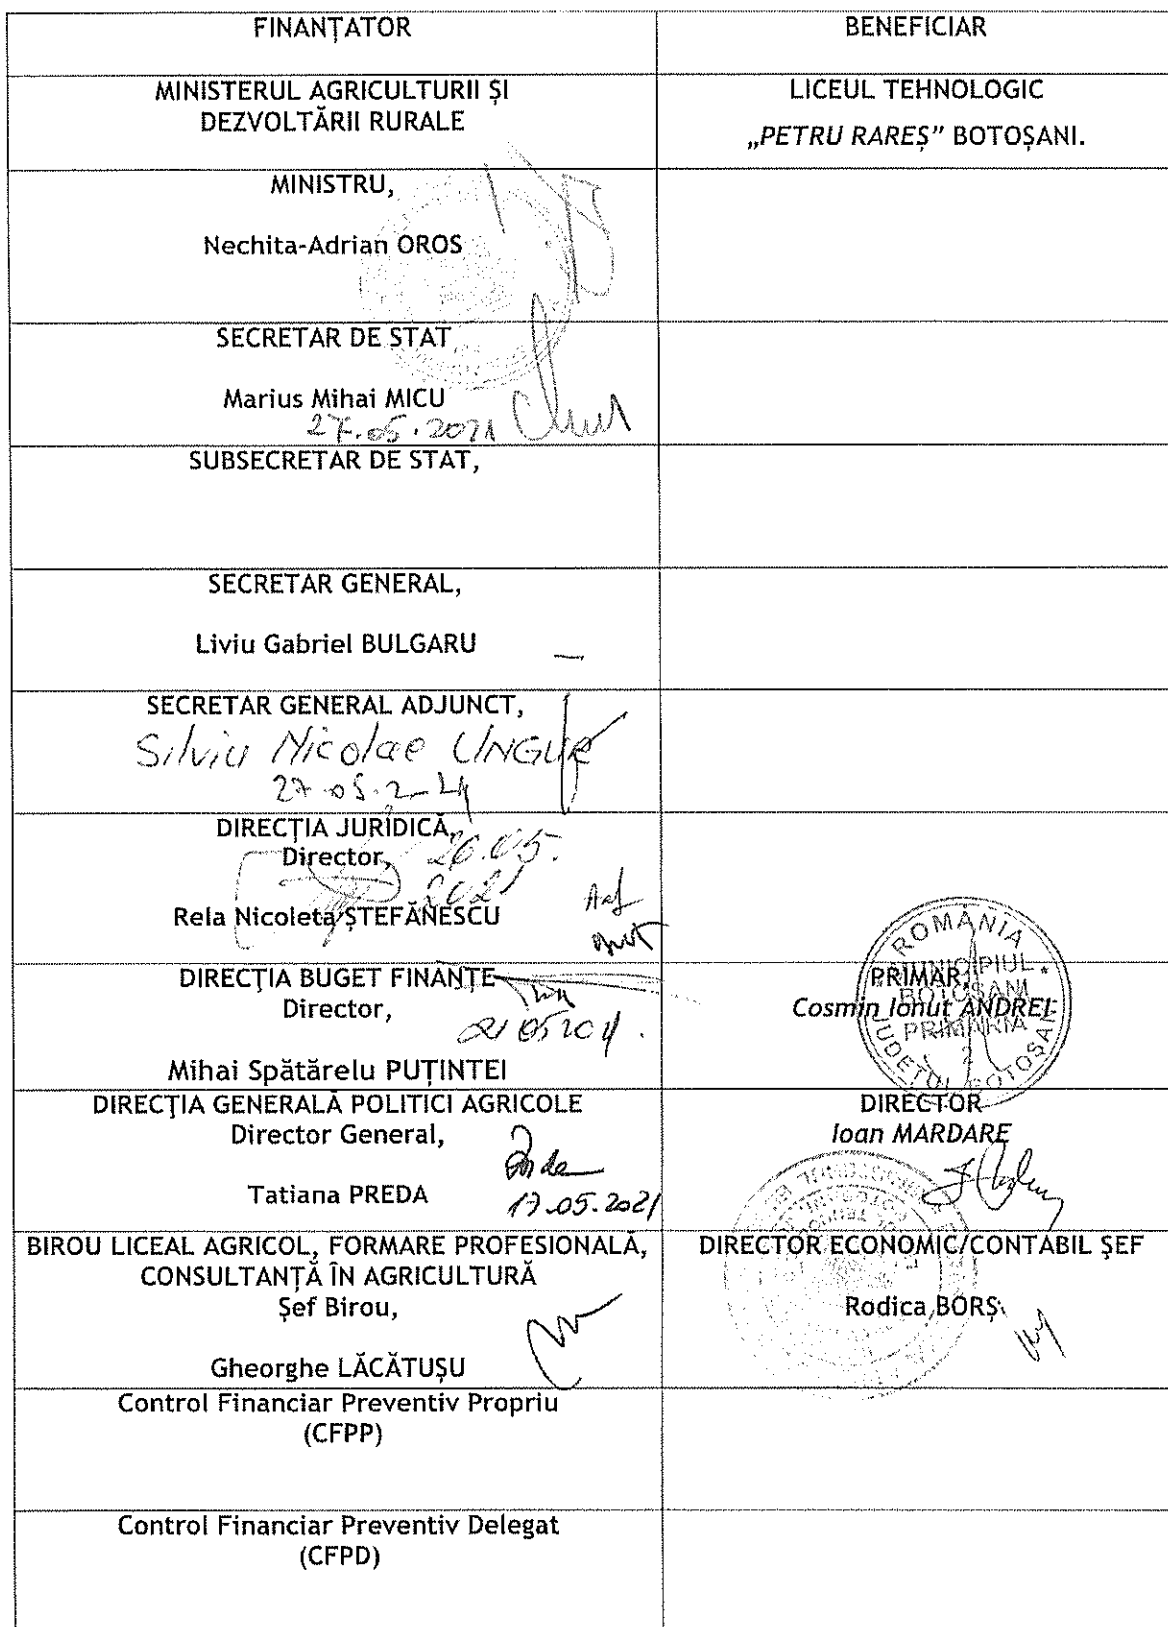 FINANȚATOR
BENEFICIAR
MINISTERUL AGRICULTURII ȘI
DEZVOLTĂRII RURALE
LICEUL TEHNOLOGIC
„PETRU RAREȘ” BOTOȘANI.
MINISTRU,
Nechita-Adrian OROS
SECRETAR DE STAT
Marius Mihai MICU
27.05.2021
SUBSECRETAR DE STAT,
SECRETAR GENERAL,
Liviu Gabriel BULGARU
SECRETAR GENERAL ADJUNCT,
Silviu Nicolae UNGUR
27.05.2021
DIRECȚIA JURIDICĂ,
Director,
26.05.
2021
Rela Nicoleta ȘTEFĂNESCU
DIRECȚIA BUGET FINANȚE
Director,
Mihai Spătărelu PUȚINTEI
ROMÂNIA
MUNICIPIUL
BOTOȘANI
PRIMĂRIA
2
JUDEȚUL BOTOȘANI
PRIMAR,
Cosmin Ionuț ANDREI
DIRECȚIA GENERALĂ POLITICI AGRICOLE
Director General,
Tatiana PREDA
17.05.2021
DIRECTOR
Ioan MARDARE
BIROU LICEAL AGRICOL, FORMARE PROFESIONALĂ,
CONSULTANȚĂ ÎN AGRICULTURĂ
Șef Birou,
Gheorghe LĂCĂTUȘU
DIRECTOR ECONOMIC/CONTABIL ȘEF
Rodica BORȘ
Control Financiar Preventiv Propriu
(CFPP)
Control Financiar Preventiv Delegat
(CFPD)